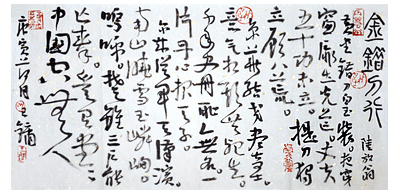 金錯刀行
陸放翁
黃金錯刀白玉裝夜穿
窗扉出光芒丈夫
五十功未立提刀獨
立顧八荒
京華結交盡奇士
意氣相期共生死
千年史冊恥無名一
片丹心報天子
尔來從軍天漢濱
南山曉雪玉嶙峋
嗚呼楚雖三戶能
亡秦豈有堂堂
中國空無人
庚寅 月王鏞